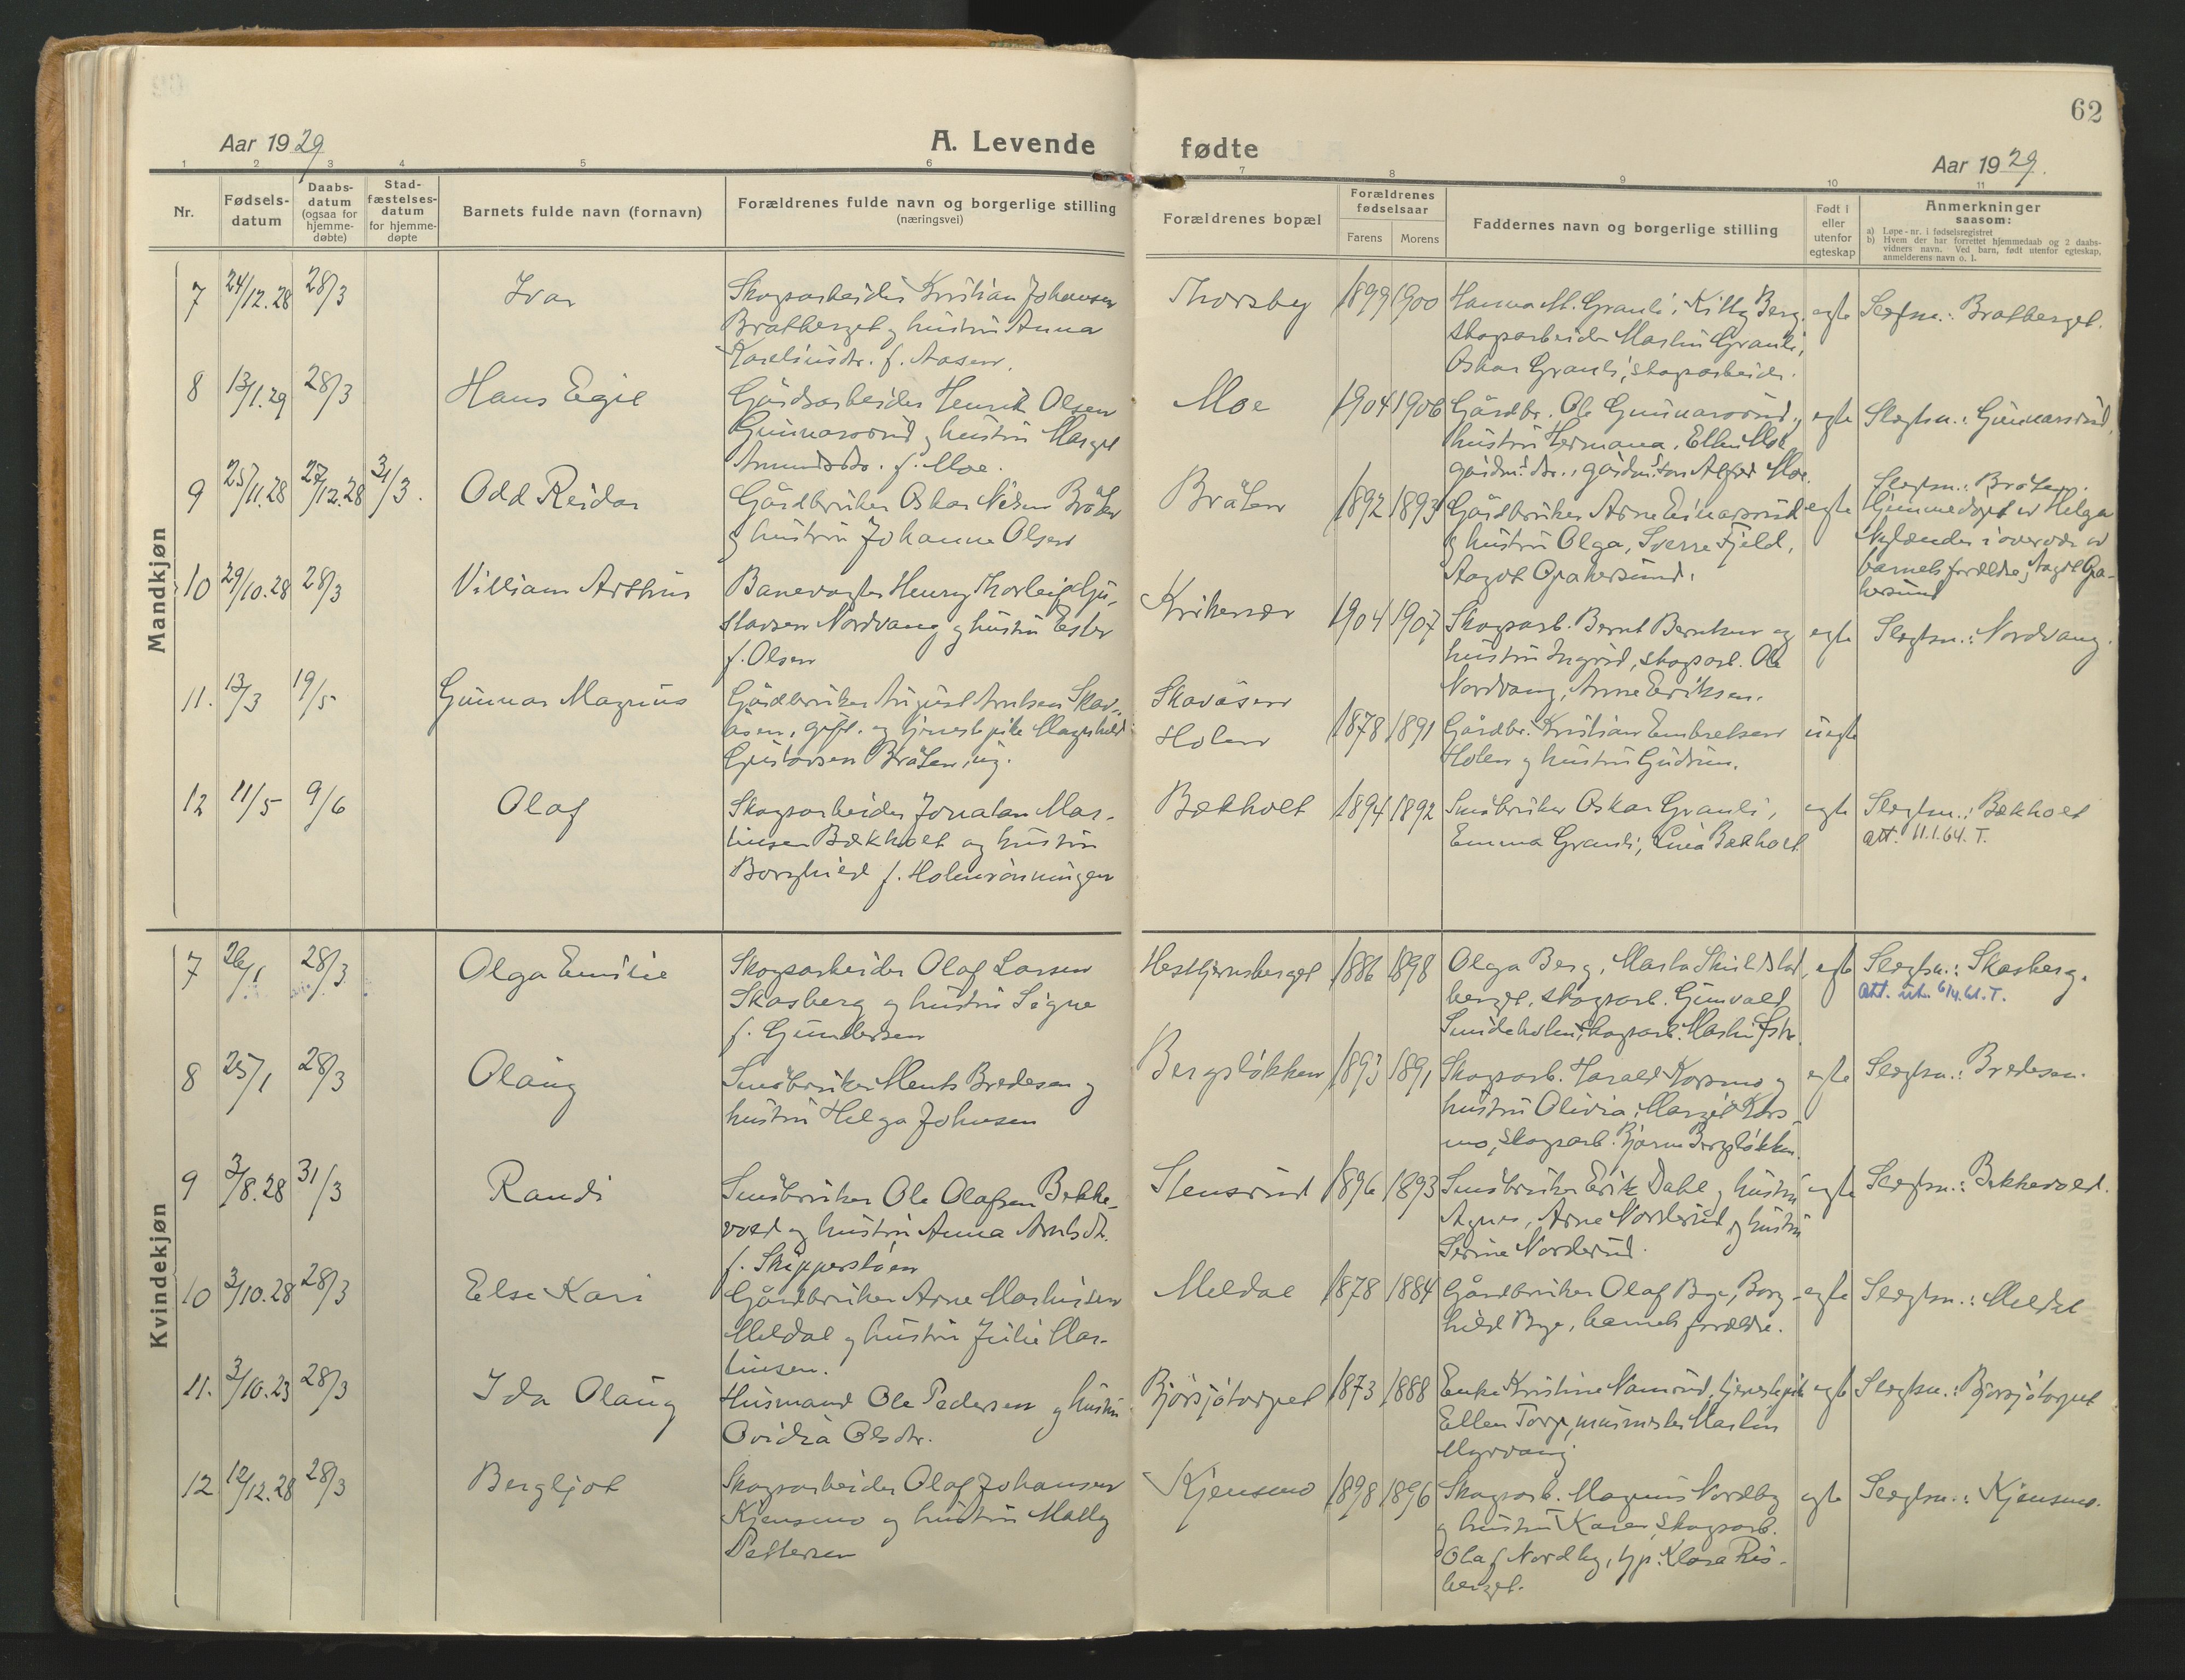 62
Aar 1929
A. Levende fødte
Aar 1929.
1 2 3 4 5 6 7 8 9 10 11
Nr.
Fødsels-
datum
Daabs-
datum
(ogsaa for
hjemme-
døbte)
Stad-
fæstelses-
datum
for hjemme-
døpte
Barnets fulde navn (fornavn)
Forældrenes fulde navn og borgerlige stilling
(næringsvei)
Forældrenes bopæl
Forældrenes
fødselsaar
Farens Morens
Faddernes navn og borgerlige stilling
Født i
eller
utenfor
egteskap
Anmerkninger
saasom:
a) Løpe-nr. i fødselsregistret
b) Hvem der har forrettet hjemmedaab og 2 daabs-
vidners navn. Ved barn, født utenfor egteskap,
anmelderens navn o. l.
Mandkjøn
7 24/12.28 28/3 Ivar
Skogsarbeider Kristian Johansen
Bratberget og hustru Anna
Kareliusdtr. f. Aasen.
Thorsby 1899 1900
Hanna M. Granli, Kitty Berg,
skogsarbeider Martin Granli,
Oskar Granli, skogsarbeider.
egte Slegtsn.: Bratberget.
8 13/1.29 28/3 Hans Egil
Gårdsarbeider Henrik Olsen
Gunnarsrud og hustru Margit
Amundsdtr. f. Moe.
Moe 1904 1906
Gårdbr. Ole Gunnarsrud,
hustru Hermana, Ellen Moe,
gårdm. dtr., gårdm. søn Alfred Moe.
egte Slegtsn.: Gunnarsrud.
9 25/11.28 27/12.28 31/3. Odd Reidar
Gårdbruker Oskar Nilsen Bråten
og hustru Johanne Olsen
Bråten 1892 1893
Gårdbruker Arne Einarsrud
og hustru Olga, Sverre Fjeld,
Aagot Opakersund.
egte Slegtsn.: Bråten.
Hjemmedøpt av Helga
Nylænder i overvær av
barnets forældre, Aagot Opa-
kersund
10 29/10.28 28/3 William Arthur
Banevogter Henry Thorleif Gu-
stavsen Nordvang og hustru Ester
f. Olsen
Krikenær 1904 1907
Skogsarb. Bernt Berntsen og
hustru Ingrid, skogsarb. Ole
Nordvang, Anne Eriksen.
egte Slegtsn.: Nordvang.
11. 13/3 19/5 Gunnar Magnus
Gårdbruker August Arntsen Skav-
åsen, gift, og tjenestepike Magnhild
Gustavsen Bråten, ug.
Skavåsen
Holen
1878 1891
Gårdbr. Kristian Embretsen
Holen og hustru Gudrun.
uegte
12 11/5 9/6 Olaf
Skogsarbeider Jonatan Mar-
tinsen Bækholt og hustru
Borghild f. Holmrønningen
Bækholt 1894 1892
Småbruker Oskar Granli,
Emma Granli, Lina Bækholt
egte Slegtsn.: Bækholt
att. 11.1.64. T.
Kvindekjøn
7 26/1 28/3 Olga Emilie
Skogsarbeider Olaf Larsen
Skasberg og hustru Signe
f. Gundersen
Hesttjernsberget 1886 1898
Olga Berg, Marta
berget, skogsarb. Gunvald
skogsarb. Martin
egte Slegtsn.: Skasberg.
att. ut. 6/4.61. T.
8 25/1 28/3 Olaug
Småbruker Ments Bredesen og
hustru Helga Johnsen
Bergsløkken 1893 1891
Skogsarb. Harald Korsmo og
hustru Olivia, Margit Kors-
mo, skogsarb. Bjarne Bergsløkken.
egte Slegtsn.: Bredesen.
9 3/8.28 31/3 Randi
Småbruker Ole Olafsen Bekke-
vold og hustru Anna Arntsdtr.
f. Skippersløen
Stensrud 1896 1893
Småbruker Erik Dahl og hustru
Agnes, Arne Norderud og hustru
Serine Norderud.
egte Slegtsn.: Bekkevold.
10 3/10.28 28/3 Else Kari
Gårdbruker Arne Martinsen
Meldal og hustru Julie Mar-
tinsen.
Meldal 1878 1884
Gårdbruker Olaf Bye, Borg-
hild Bye, barnets forældre.
egte Slegtsn.: Meldal
11. 3/10.23 28/3 Ida Olaug
Husmand Ole Pedersen og hustru
Ovidia Olsdtr.
Bjørsjøtorpet 1873 1888
Enke Kristine Namrud, tjenestepike
Ellen Torp, murmester Martin
Myrvang
egte Slegtsn.: Bjørsjøtorpet
12 12/12.28 28/3 Bergljot
Skogsarbeider Olaf Johansen
Kjensmo og hustru Mally
Pettersen
Kjensmo 1898 1896
Skogsarb. Magnus Nordby
og hustru Karen, skogsarb.
Olaf Nordby, tjp. Klara Ris-
berget.
egte Slegtsn.: Kjensmo.